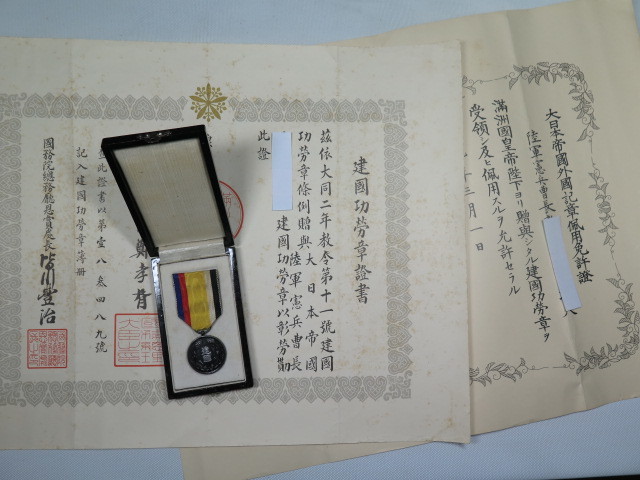 建國功勞章證書
茲依大同二年教令第十一號建國
功勞章條例贈與大日本帝國
陸軍憲兵曹長
建國功勞章以彰勞勩
此證
鄭孝胥
此證書以第壹八參四八九號
記入建國功勞章簿冊
國務院總務廳恩賞處長
大日本帝國外國記章佩用免許證
陸軍憲兵曹長
滿洲國皇帝陛下ヨリ贈與シタル建國功勞章ヲ
受領シ及ヒ佩用スルヲ允許セラル
月一日